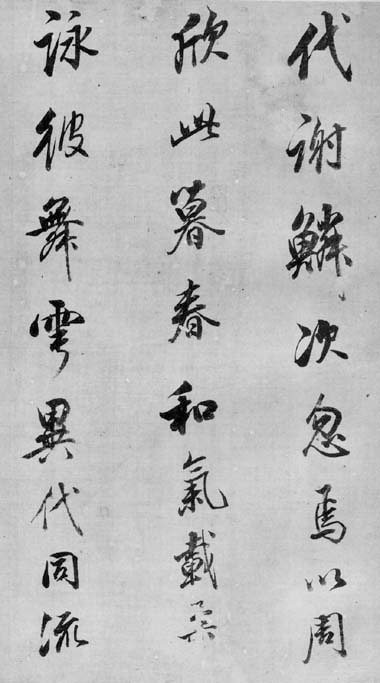 代謝鱗次忽焉以周
欣此暮春和氣載柔
詠彼舞雩異代同流